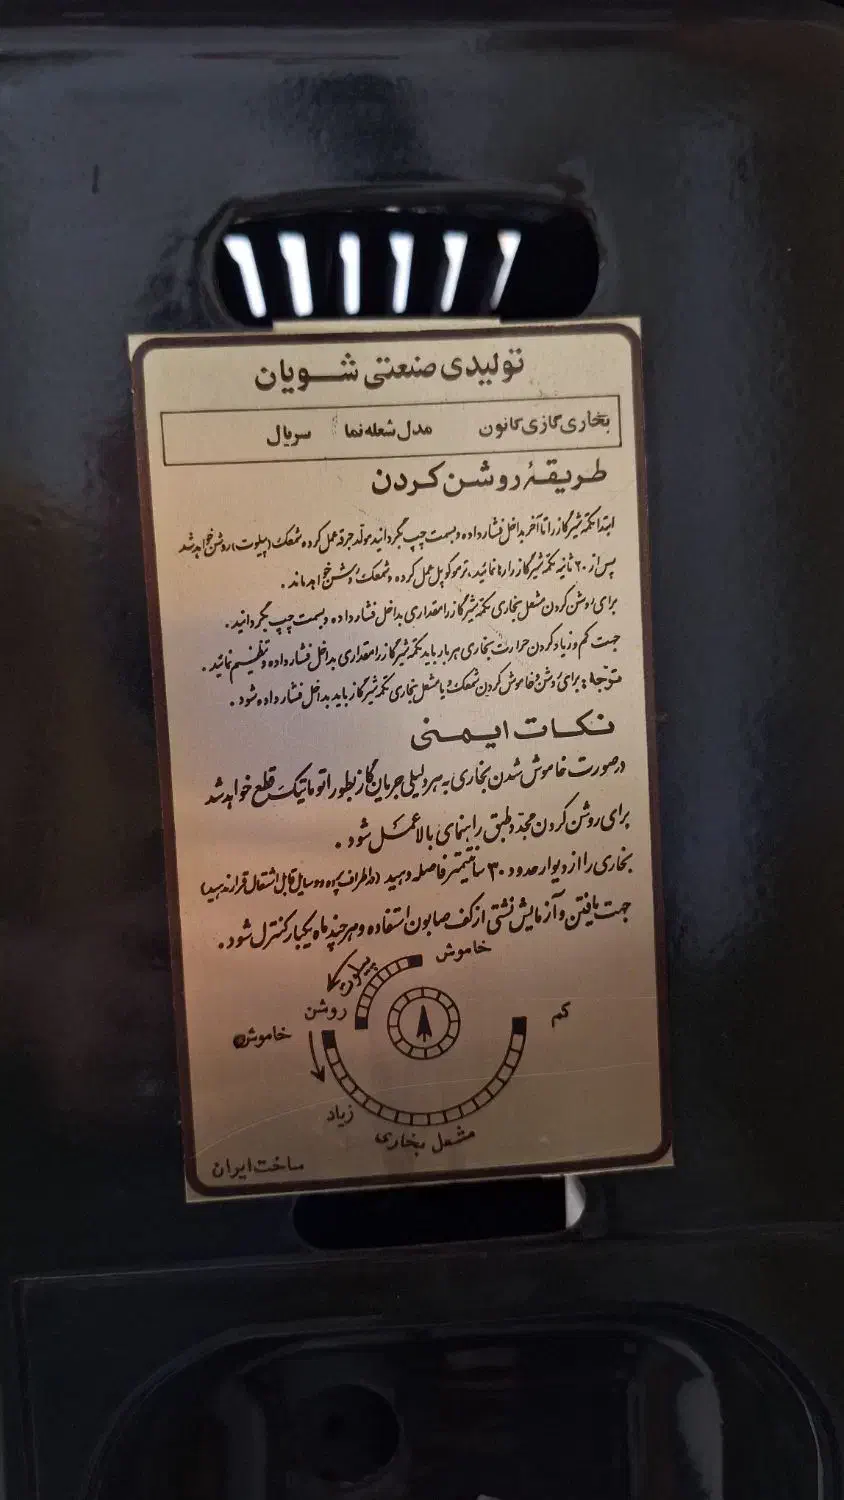 تولیدی صنعتی شویان
بخاری گازی کانون مدل شعله نما سریال
طریقهٔ روشن کردن
ابتدا تکمه شیر گاز را تا آخر بداخل فشار داده و بسمت چپ بگردانید مولد جرقه عمل کرده شمعک (پیلوت) روشن خواهد شد
پس از ۲۰ ثانیه تکمه شیر گاز را رها نمائید، ترموکوپل عمل کرده و شمعک روشن خواهد ماند.
برای روشن کردن مشعل بخاری تکمه شیر گاز را مقداری بداخل فشار داده و بسمت چپ بگردانید.
جهت کم و زیاد کردن حرارت بخاری هر بار باید تکمه شیر گاز را مقداری بداخل فشار داده و تنظیم نمائید.
توجّه: برای روشن و خاموش کردن شمعک و یا مشعل بخاری تکمه شیر گاز باید بداخل فشار داده شود.
نکات ایمنی
درصورت خاموش شدن بخاری به هر دلیلی جریان گاز بطور اتوماتیک قطع خواهد شد
برای روشن کردن مجدّد طبق راهنمای بالا عمل شود.
بخاری را از دیوار حدود ۳۰ سانتیمتر فاصله دهید (در اطراف پرده و وسایل قابل اشتعال قرار ندهید)
جهت یافتن و آزمایش نشتی از کف صابون استفاده و هر چند ماه یکبار کنترل شود.
خاموش
پیلوت
روشن
کم
خاموش
زیاد
مشعل بخاری
ساخت ایران